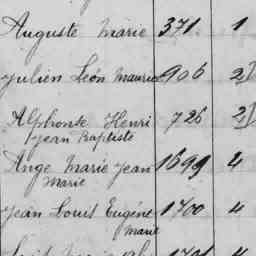 Auguste Marie 371 1
Julien Léon Maurice 906 2
Alphonse Henri 726 2
Jean Baptiste
Ange Marie Jean 1699 4
Marie
Jean Louis Eugéne 1700 4
Marie